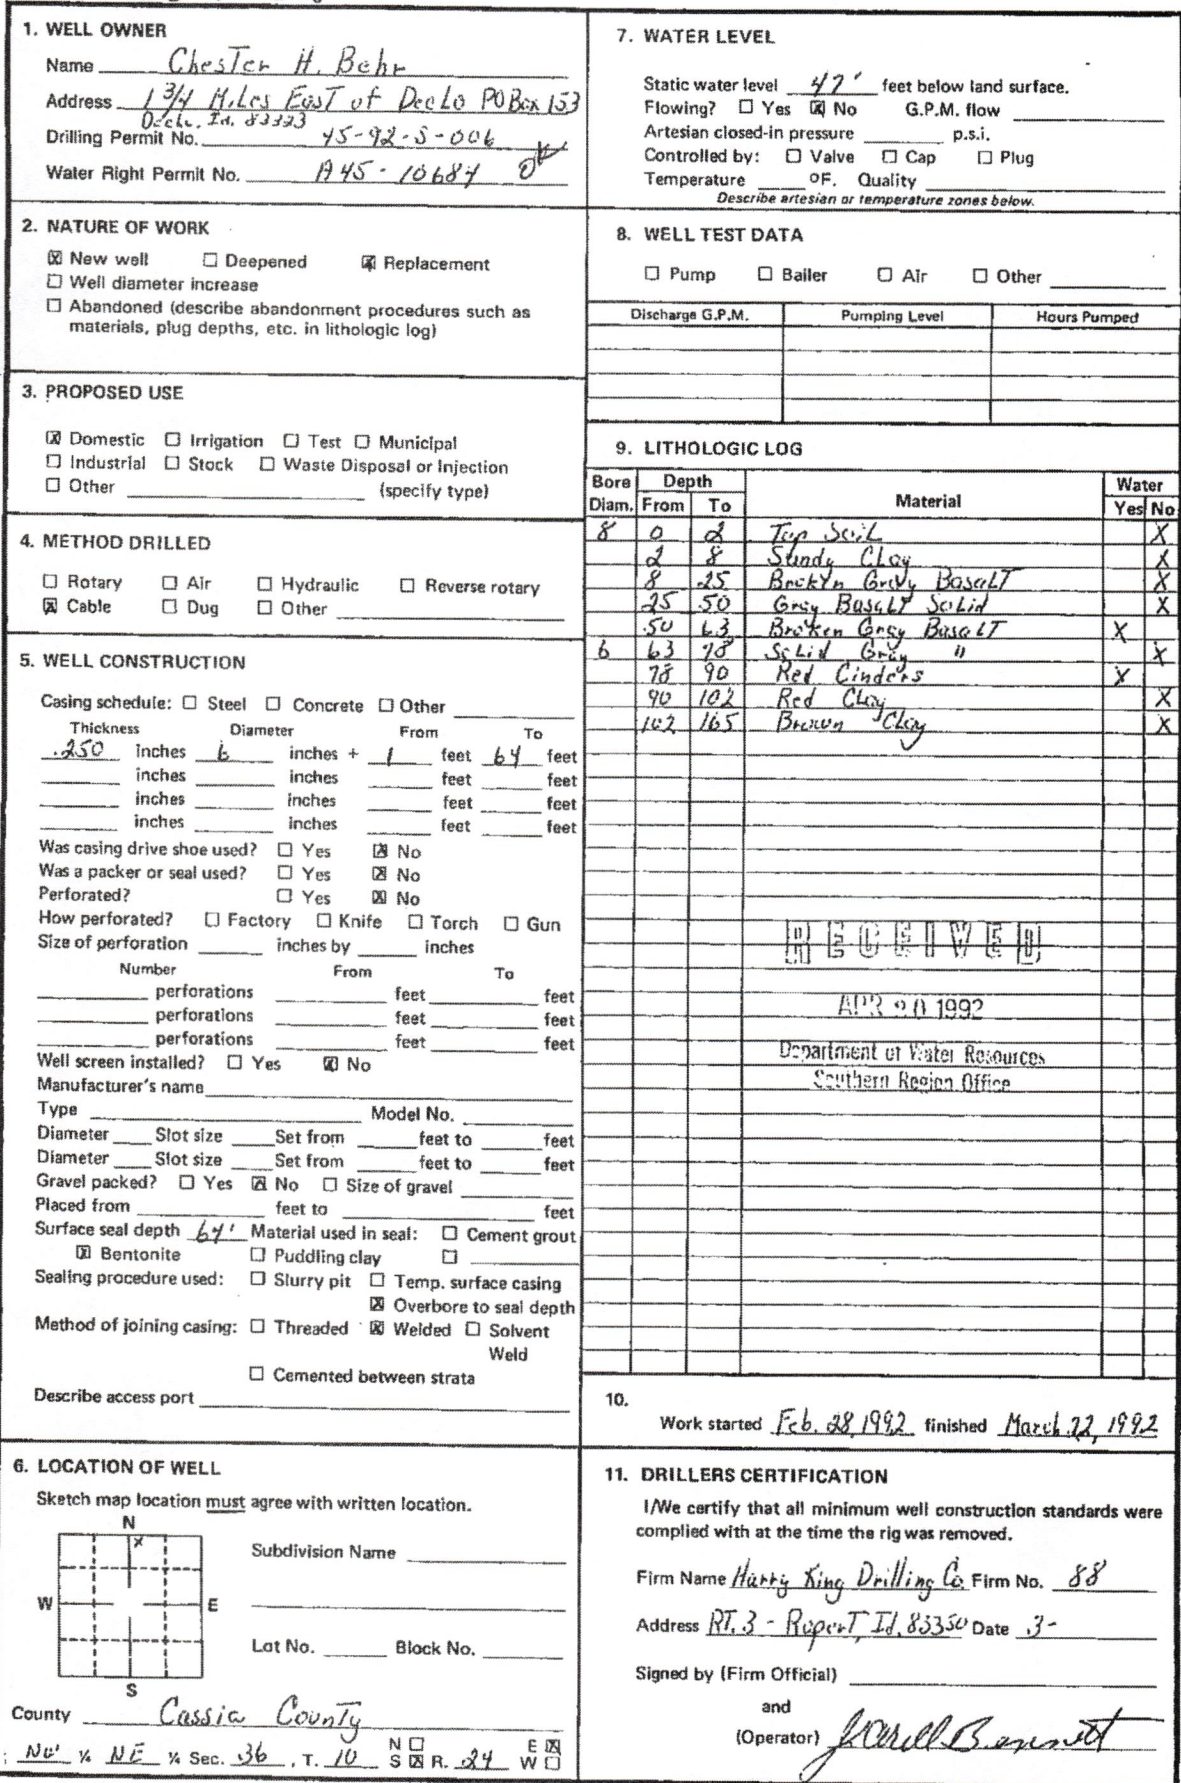 1. WELL OWNER
Name Chester H. Behr
Address 1 3/4 Miles East of Declo PO Box 153
Declo, Id. 83323
Drilling Permit No. 45-92-S-006
Water Right Permit No. A45-10684 OK
2. NATURE OF WORK
☒ New well ☐ Deepened ☒ Replacement
☐ Well diameter increase
☐ Abandoned (describe abandonment procedures such as
materials, plug depths, etc. in lithologic log)
3. PROPOSED USE
☒ Domestic ☐ Irrigation ☐ Test ☐ Municipal
☐ Industrial ☐ Stock ☐ Waste Disposal or Injection
☐ Other (specify type)
4. METHOD DRILLED
☐ Rotary ☐ Air ☐ Hydraulic ☐ Reverse rotary
☒ Cable ☐ Dug ☐ Other
5. WELL CONSTRUCTION
Casing schedule: ☐ Steel ☐ Concrete ☐ Other
Thickness Diameter From To
.250 inches 6 inches + 1 feet 64 feet
inches inches feet feet
inches inches feet feet
inches inches feet feet
Was casing drive shoe used? ☐ Yes ☒ No
Was a packer or seal used? ☐ Yes ☒ No
Perforated? ☐ Yes ☒ No
How perforated? ☐ Factory ☐ Knife ☐ Torch ☐ Gun
Size of perforation inches by inches
Number From To
perforations feet feet
perforations feet feet
perforations feet feet
Well screen installed? ☐ Yes ☒ No
Manufacturer's name
Type Model No.
Diameter Slot size Set from feet to feet
Diameter Slot size Set from feet to feet
Gravel packed? ☐ Yes ☒ No ☐ Size of gravel
Placed from feet to feet
Surface seal depth 64' Material used in seal: ☐ Cement grout
☒ Bentonite ☐ Puddling clay ☐
Sealing procedure used: ☐ Slurry pit ☐ Temp. surface casing
☒ Overbore to seal depth
Method of joining casing: ☐ Threaded ☒ Welded ☐ Solvent
Weld
☐ Cemented between strata
Describe access port
6. LOCATION OF WELL
Sketch map location must agree with written location.
N
X
W E
S
Subdivision Name
Lot No. Block No.
County Cassia County
NW ¼ NE ¼ Sec. 36, T. 10 N ☐ S ☒ R. 24 E ☒ W ☐
7. WATER LEVEL
Static water level 47' feet below land surface.
Flowing? ☐ Yes ☒ No G.P.M. flow
Artesian closed-in pressure p.s.i.
Controlled by: ☐ Valve ☐ Cap ☐ Plug
Temperature °F. Quality
Describe artesian or temperature zones below.
8. WELL TEST DATA
☐ Pump ☐ Bailer ☐ Air ☐ Other
Discharge G.P.M. Pumping Level Hours Pumped
9. LITHOLOGIC LOG
Bore Depth Water
Diam. From To Material Yes No
8 0 2 Top Soil X
2 8 Sandy Clay X
8 25 Broken Gray Basalt X
25 50 Gray Basalt Solid X
50 63 Broken Gray Basalt X
6 63 78 Solid Gray " X
78 90 Red Cinders X
90 102 Red Clay X
102 165 Brown Clay X
RECEIVED
APR 20 1992
Department of Water Resources
Southern Region Office
10.
Work started Feb. 28, 1992 finished March 22, 1992
11. DRILLERS CERTIFICATION
I/We certify that all minimum well construction standards were
complied with at the time the rig was removed.
Firm Name Harry King Drilling Co. Firm No. 88
Address RT. 3 - Rupert, Id. 83350 Date 3-
Signed by (Firm Official)
and
(Operator) Bennett